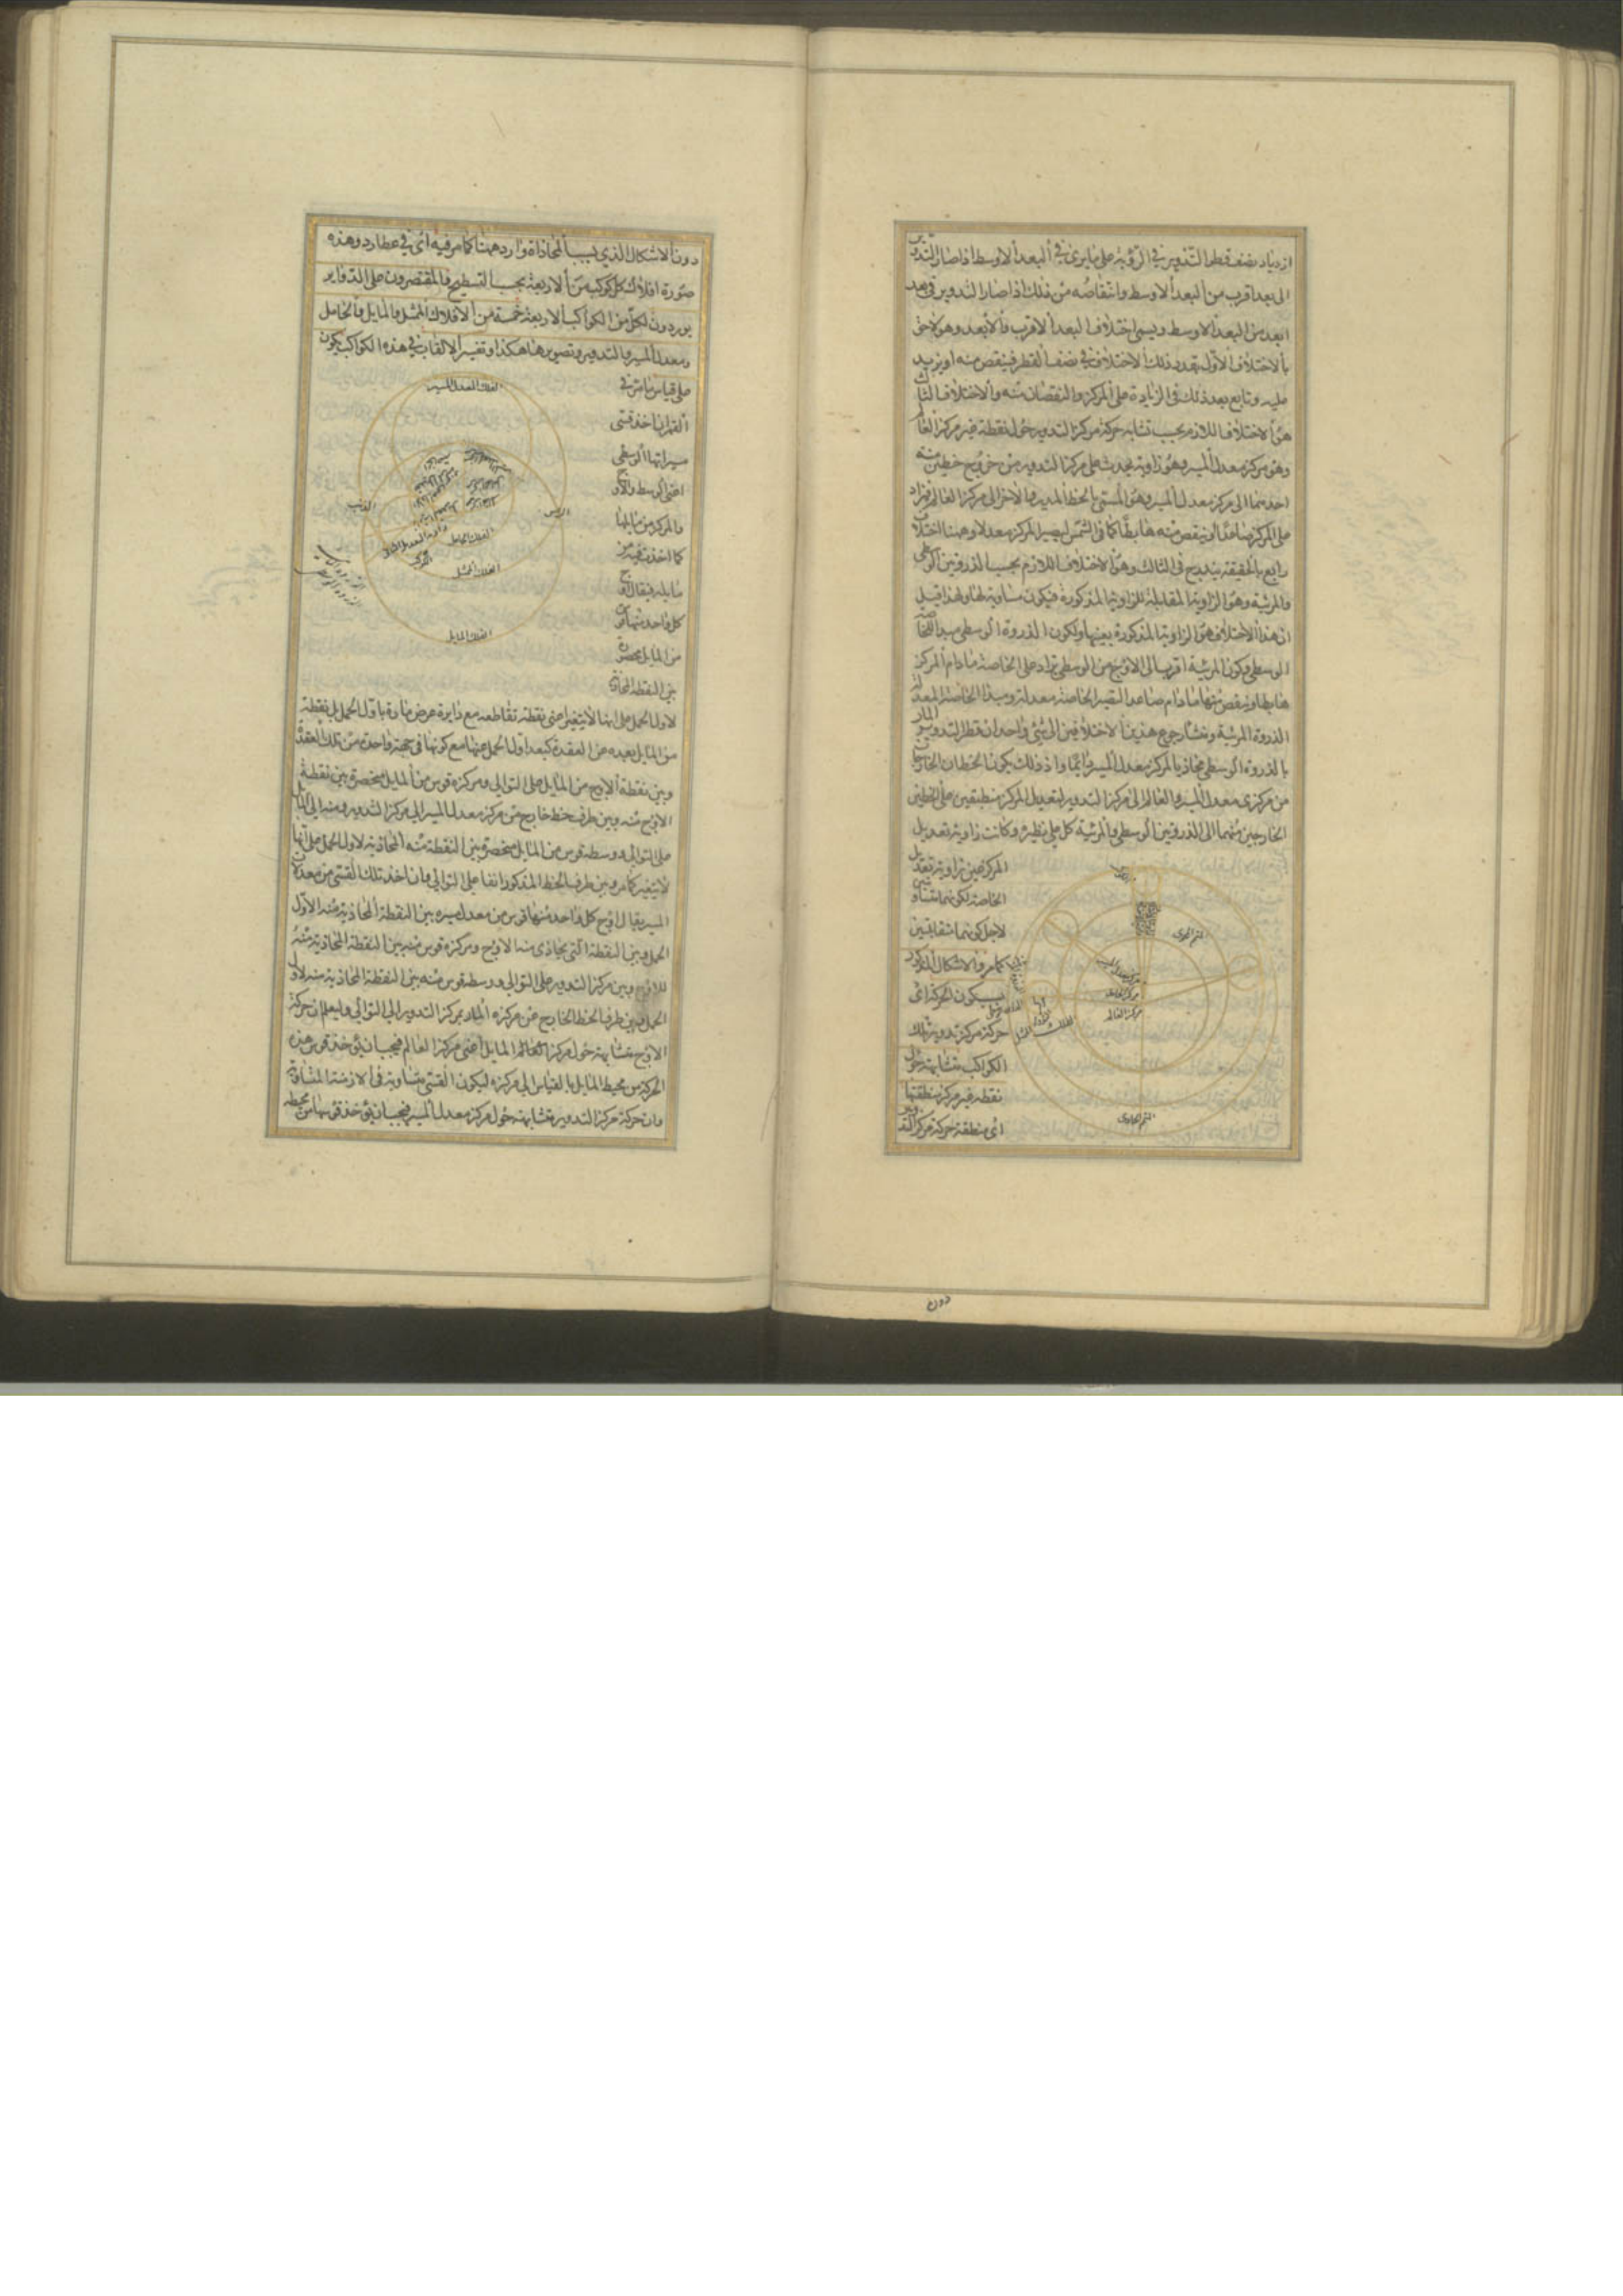 ازدياد نصف قطر التدوير في الرؤية على ما يرى في البعد الاوسط اذا صار التدوير
الى بعد اقرب من البعد الاوسط وانتقاصه من ذلك اذا صار التدوير في بعد
ابعد من البعد الاوسط ويسمى اختلاف البعد الاقرب والابعد وهو لاحق
بالاختلاف الاول بقدر ذلك الاختلاف في نصف القطر فينقص منه او يزيد
عليه وتابع بعد ذلك في الزيادة على المركز والنقصان منه والاختلاف الثالث
هو الاختلاف اللازم بحسب تشابه حركة مركز التدوير حول نقطة غير مركز العالم
وهو مركز معدل المسير وهو زاوية يحدث على مركز التدوير من خروج خطين منه
احدهما الى مركز معدل المسير وهو المسمى بالخط المدير والاخر الى مركز العالم فزاد
على المركز صاعدا او ينقص منه هابطا كما في الشمس ليصير المركز معدلا وههنا اختلاف
رابع بالحقيقة يندرج في الثالث وهو الاختلاف اللازم بحسب الذروتين الوسطى
والمرئية وهو الزاوية المقابلة للزاوية المذكورة فيكون مساوية لها ولهذا قيل
ان هذا الاختلاف هو الزاوية المذكورة بعينها ولكون الذروة الوسطى مبدا للخاصة
الوسطى وكون المرئية اقرب الى الاوج من الوسطى تزاد على الخاصة ما دام المركز
هابطا وينقص منها ما دام صاعدا لتصير الخاصة معدلة ومبدا الخاصة المعدلة
الذروة المرئية ومنشا رجوع هذين الاختلافين الى شئ واحد ان قطر التدوير المار
بالذروة الوسطى محاذ بالمركز معدل المسير دائما واذ ذلك يكون الخطان الخارجان
من مركزى معدل المسير والعالم الى مركز التدوير لتعديل المركز منطبقين على الخطين
الخارجين منهما الى الذروتين الوسطى والمرئية كل على نظيره وكانت زاوية تعديل
المركز عين زاوية تعديل
الخاصة لكونهما متساويتين
لاجل كونهما متقابلتين
كما مر والاشكال المذكور
بسبب كون الحركة اى
حركة مركز تدوير تلك
الكواكب متشابهة حول
نقطة غير مركز منطقتها
اى منطقة حركة مركز التدوير
المتمم الحاوى
مركز معدل المسير
مركز الحامل
مركز العالم
الفلك الممثل
المتمم المحوى
دون
دون الاشكال الذي بسبب المحاذاة وارد ههنا كما مر فيه اى في عطارد وهذه
صورة افلاك كل كوكب من الاربعة بحسب التسطيح والمقتصرون على الدواير
يوردون لكل من الكواكب الاربعة خمسة من الافلاك الممثل والمايل والحامل
ومعدل المسير والتدوير وتصويرها هكذا وتفسير الالقاب في هذه الكواكب يكون
على قياس ما مر في
القمر انا اخذ قسى
مسيراتها الوسطى
اعنى الوسط والاوج
والمركز من مايلها
كما اخذت فيه من
مايله فيقال اوج
كل واحد منها قوس
من المايل محصورة
بين النقطة المحاذية
لاول الحمل على انها لا يتغير اعنى نقطة تقاطعه مع دايرة عرض مارة باول الحمل بل بنقطة
من المايل بعده عن العقدة كبعد اول الحمل عنها مع كونها في جهة واحدة من تلك العقدة
وبين نقطة الاوج من المايل على التوالي ومركزه قوس من المايل منحصرة بين نقطة
الاوج منه وبين طرف خط خارج من مركز معدل المسير الى مركز التدوير ومنه الى المايل
على التوالي ووسطه قوس من المايل منحصرة بين النقطة منه المحاذية لاول الحمل على انها
لا يتغير كما مر وبين طرف الخط المذكور انفا على التوالي وان اخذ تلك القسى من معدلات
المسير يقال اوج كل واحد منها قوس من معدل مسيره بين النقطة المحاذية منه لاول
الحمل وبين النقطة التي يحاذى منه الاوج ومركزه قوس منه بين النقطة المحاذية منه
للاوج وبين مركز التدوير على التوالي ووسطه قوس منه بين النقطة المحاذية منه لاول
الحمل وبين طرف الخط الخارج من مركزه المار بمركز التدوير الى التوالي وليعلم ان حركة
الاوج متشابهة حول مركز العالم المايل اعنى مركز العالم فيجب ان يؤخذ قوس هذه
الحركة من محيط المايل بالقياس الى مركزه ليكون القسى متساوية في الازمنة المتساوية
وان حركة مركز التدوير متشابهة حول مركز معدل المسير فيجب ان يؤخذ قوسها من محيطه
الفلك المعدل المسير
الراس
الذنب
الفلك الحامل
الفلك الممثل
الفلك المايل